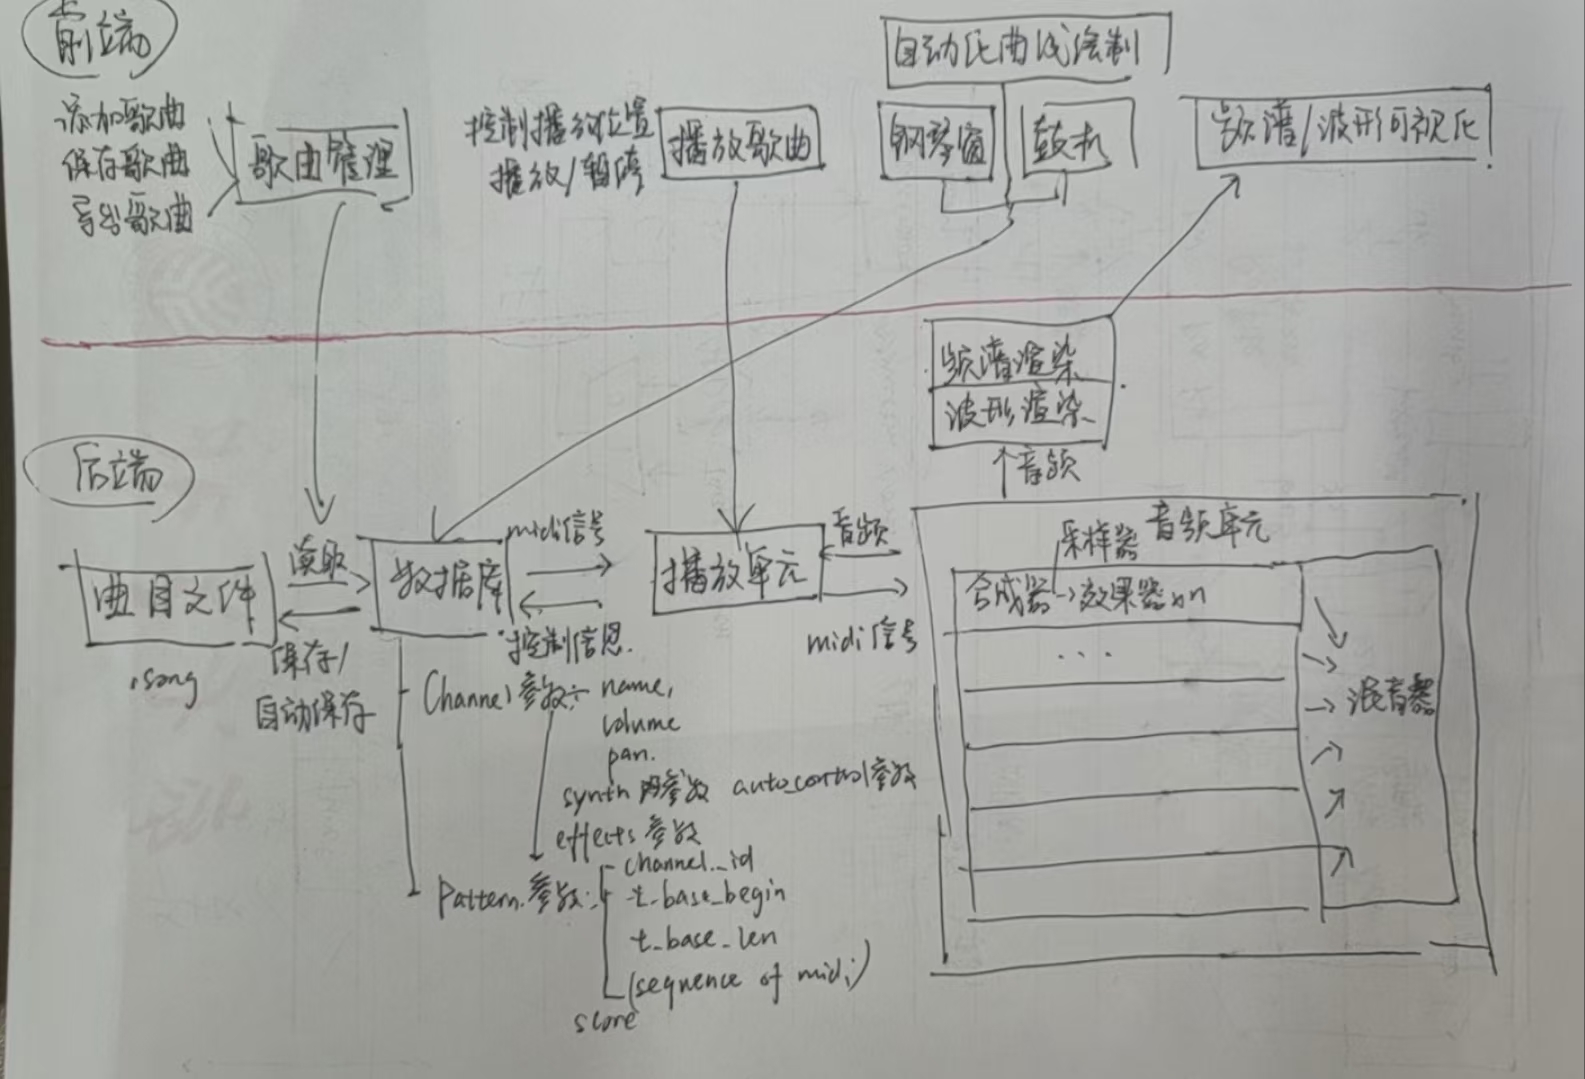 前端
自动化曲线绘制
添加歌曲
保存歌曲
导出歌曲
歌曲管理
控制播放位置
播放/暂停
播放歌曲
钢琴窗
鼓机
频谱/波形可视化
频谱渲染
波形渲染
音频
后端
曲目文件
.song
读取
保存/
自动保存
数据库
midi信号
控制信息.
播放单元
音频
midi信号
采样器
音频单元
合成器→效果器xn
...
混音器
Channel参数:
name,
volume
pan.
synth内参数 auto_control参数
effects参数
Pattern参数:
channel_id
t_base_begin
t_base_len
(sequence of midi)
score